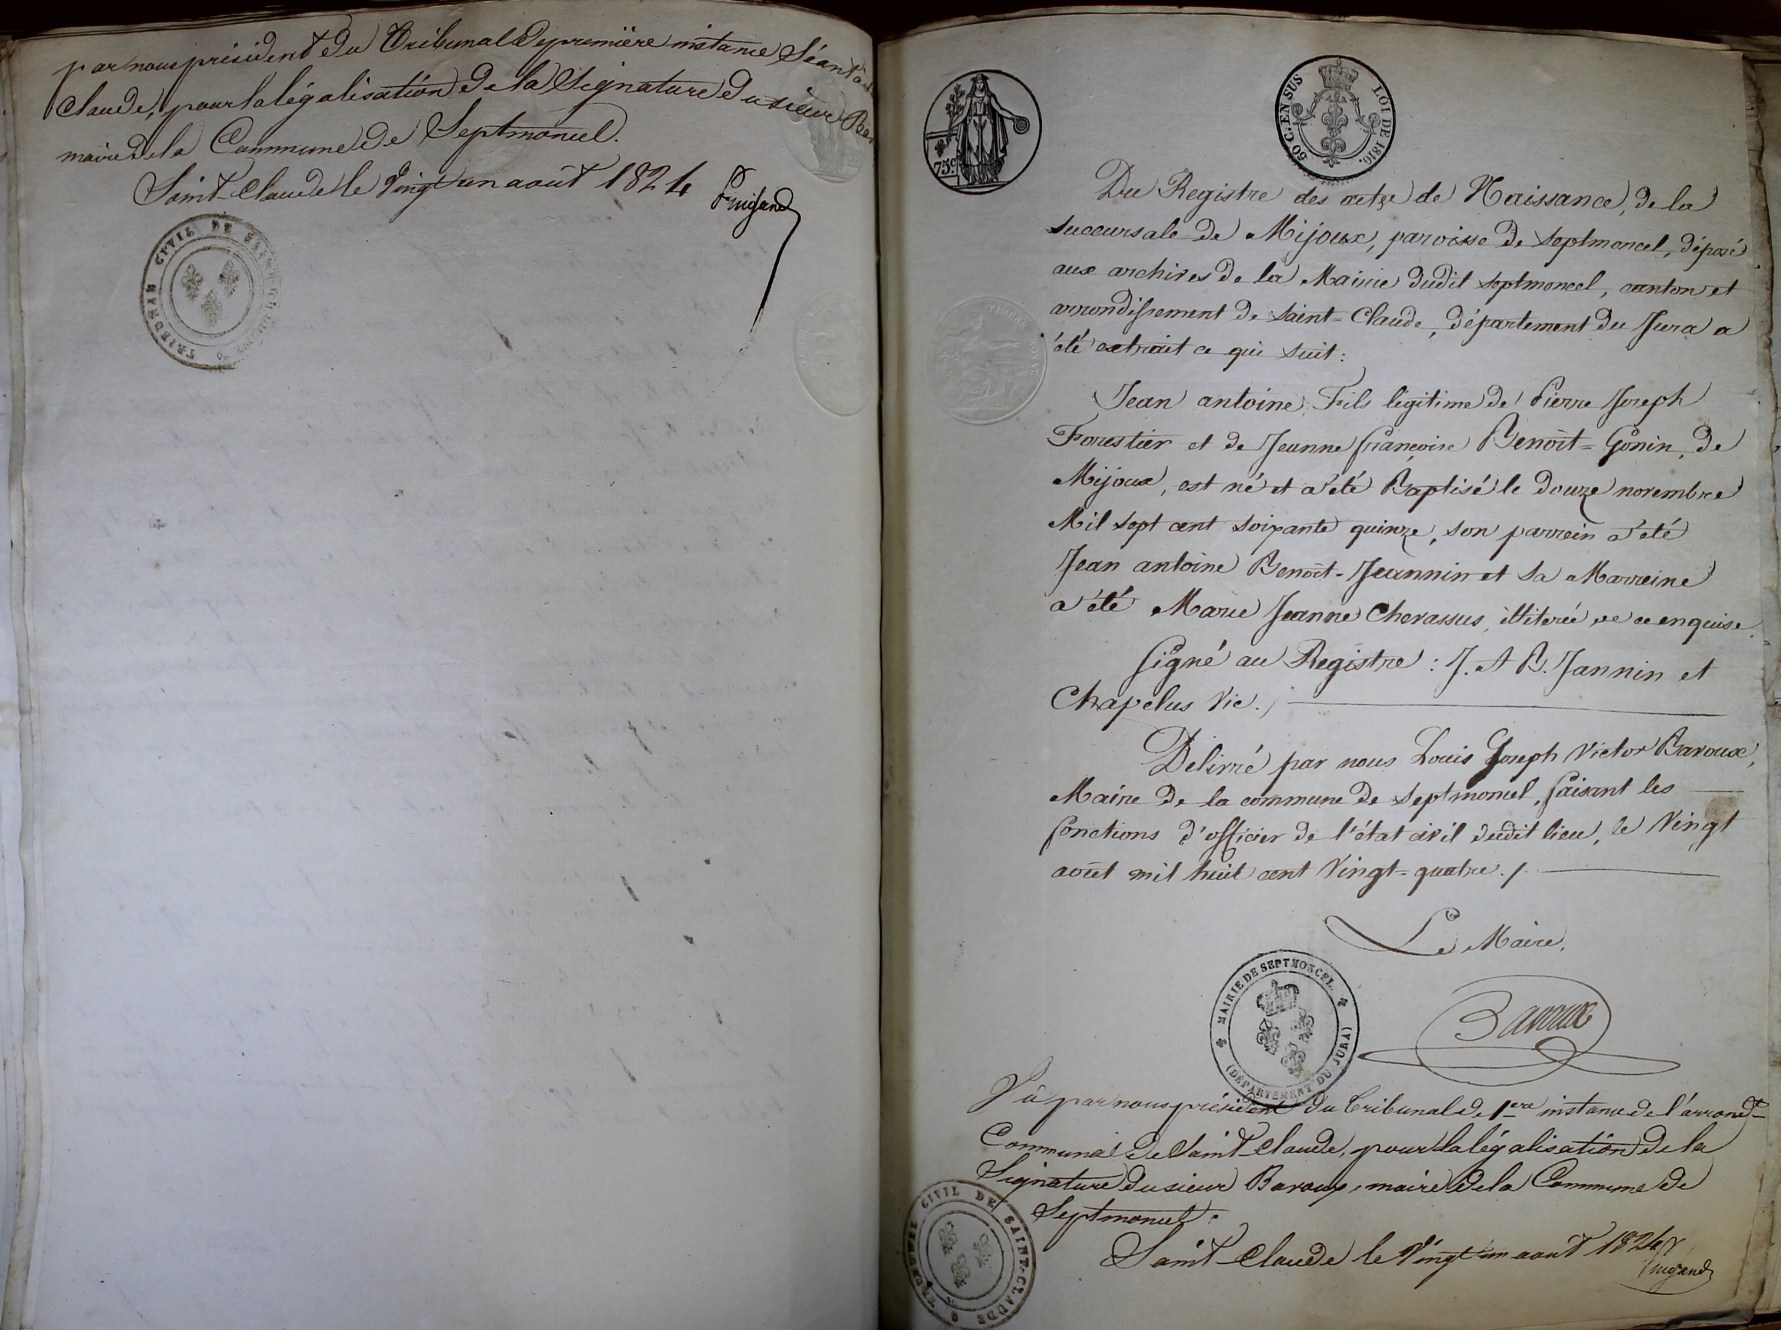 par nous président du Tribunal de première instance Séant à
Claude, pour la légalisation de la Signature du sieur
maire de la Commune de Septmoncel.
Saint-Claude le Vingt un août 1824
TRIBUNAL CIVIL DE
75 c.
50 C. EN SUS
LOI DE 1816.
Du Registre des acte de Naissance, de la
succursale de Mijoux, paroisse de Septmoncel, déposé
aux archives de la Mairie dudit Septmoncel, canton et
arrondissement de Saint-Claude, département du Jura a
été extrait ce qui suit:
Jean antoine, Fils légitime de Pierre Joseph
Forestier et de Jeanne françoise Benoit-Gonin, de
Mijoux, est né et a été Baptisé le douze novembre
Mil sept cent soixante quinze, son parrein a été
Jean antoine Benoit-Jeannin et Sa Marreine
a été Marie Jeanne Chevassus, illiterée de ce enquise.
Signé au Registre: J. A B. Jannin et
Chapelus Vic./
Délivré par nous Louis Joseph Victor Bavoux,
Maire de la commune de Septmoncel, faisant les
fonctions d'officier de l'état civil dudit lieu, le Vingt
août mil huit cent Vingt-quatre./.
Le Maire,
MAIRIE DE SEPTMONCEL
(DÉPARTEMENT DU JURA)
Bavoux
Vu par nous président du tribunal de 1ere instance de l'arrondt
Communal de Saint Claude, pour la légalisation de la
Signature du sieur Bavoux, maire de la Commune de
Septmoncel.
Saint-Claude le Vingt un août 1824
TRIBUNAL CIVIL DE SAINT-CLAUDE